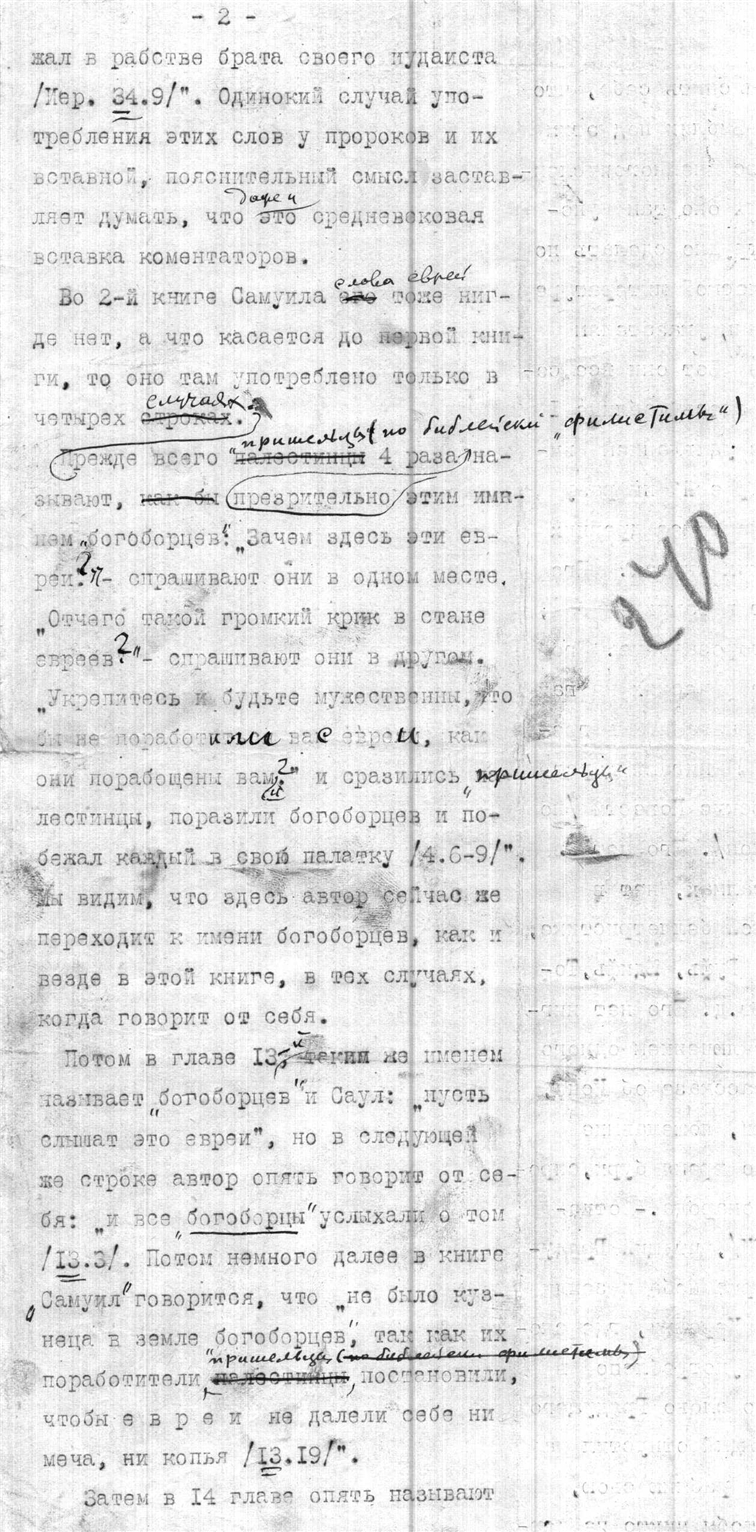 - 2 -
жал в рабстве брата своего иудаиста
/Иер. 34.9/". Одинокий случай упо-
требления этих слов у пророков и их
вставной, пояснительный смысл застав-
ляет думать, что это средневековая
вставка коментаторов.
слова еврей
Во 2-й книге Самуила его тоже ниг-
де нет, а что касается до первой кни-
ги, то оно там употреблено только в
случаях
четырех строках.
"пришельцы (по библейски „филистимцы")
Прежде всего палестинцы 4 раза на-
зывают, как бы презрительно этим име-
нем „богоборцев": „Зачем здесь эти ев-
реи?"- спрашивают они в одном месте.
„Отчего такой громкий крик в стане
евреев?"- спрашивают они в другом.
„Укрепитесь и будьте мужественны,
бы не поработили вас евреи, как
они порабощены вам?" и сразились "пришельцы"
лестинцы, поразили богоборцев и по-
бежал каждый в свою палатку /4.6-9/".
Мы видим, что здесь автор сейчас же
переходит к имени богоборцев, как и
везде в этой книге, в тех случаях,
когда говорит от себя.
Потом в главе 13-й таким же именем
называет „богоборцев" и Саул: „пусть
слышат это евреи", но в следующей
же строке автор опять говорит от се-
бя: „и все „богоборцы" услыхали о том
/13.3/. Потом немного далее в книге
„Самуил" говорится, что „не было куз-
неца в земле богоборцев", так как их
"пришельцы (по библейски филистимцы)
поработители, палестинцы, постановили,
чтобы е в р е и не далели себе ни
меча, ни копья /13.19/".
Затем в 14 главе опять называют
270